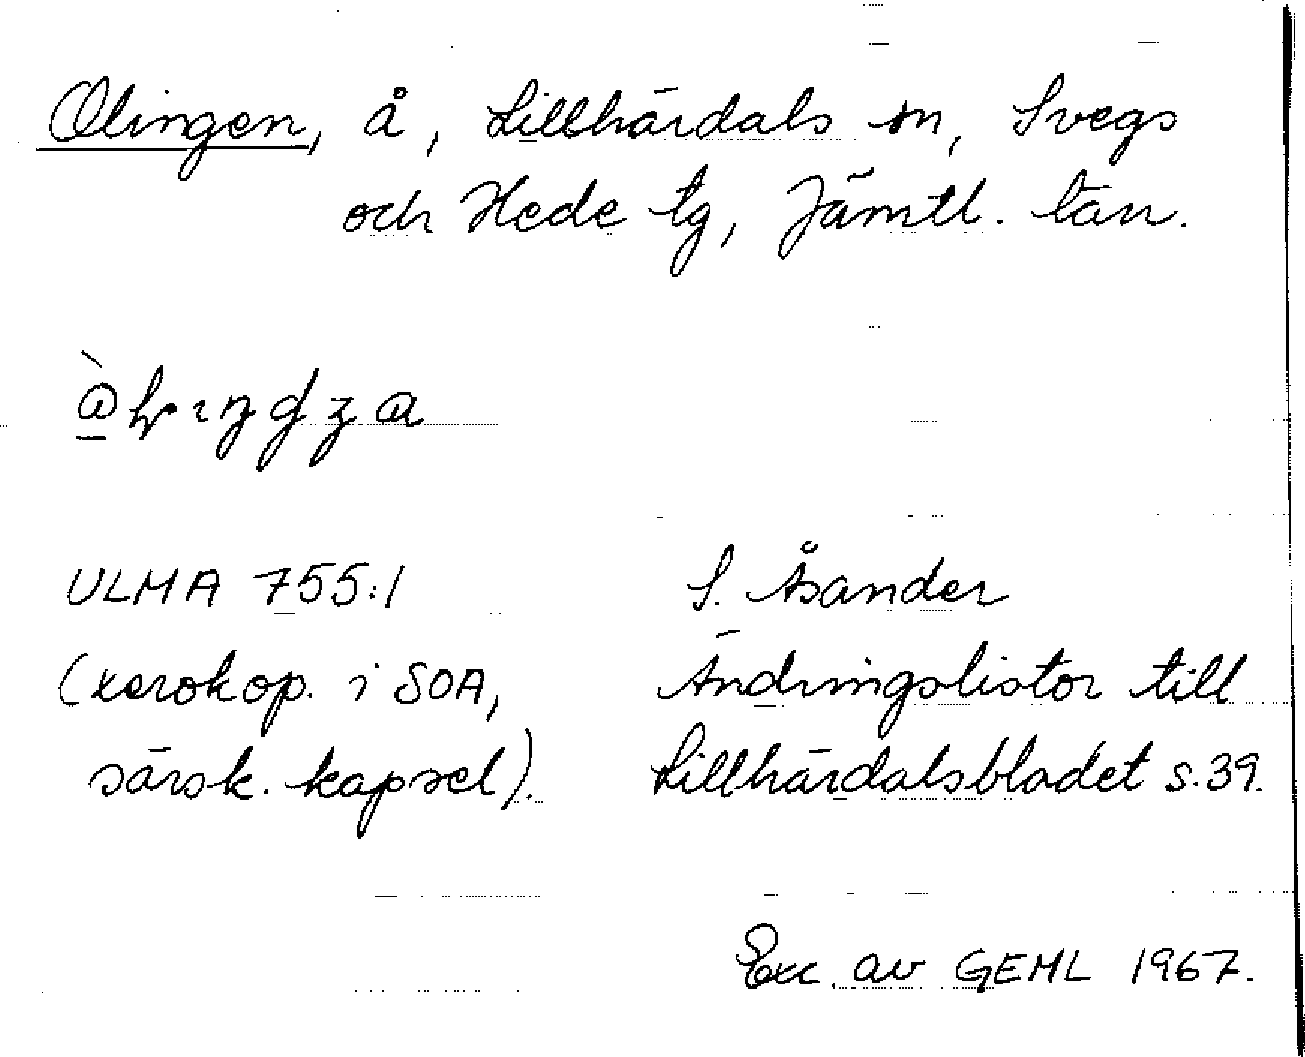 Olingen, å, Lillhärdals sn, Svegs
och Hede tg, Jämtl. län.
ULMA 755:1
(xerokop. i SOA,
särsk. kapsel).
S. Åsander
Ändringslistor till
Lillhärdalsbladet s. 39.
Exc. av GEHL 1967.